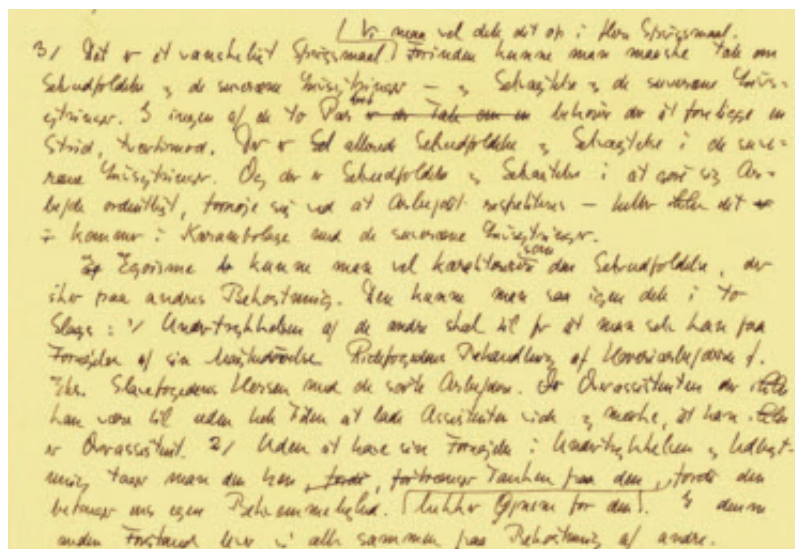 Vi maa vel dele det op i flere Spørgsmaal.
3/ Det er et vanskeligt Spørgsmaal. Forinden kunne man maaske tale om
Selvudfoldelse og de suveræne Livsytringer – og Selvagtelse og de suveræne Livs-
ytringer. I ingen af de to Par er der Tale om en behøver der at foreligge en
Strid, tværtimod. Der er Sel allerede Selvudfoldelse og Selvagtelse i de suve-
ræne Livsytringer. Og der er Selvudfoldelse og Selvagtelse i at gøre sig Ar-
bejde ordentligt, fornøje sig ved at Arbejdet respekteres – heller det
kommer i Karambolage med de suveræne Livsytringer.
Egoisme kunne man vel karakterisere som den Selvudfoldelse, der
sker paa andres Bekostning. Den kunne man saa igen dele i to
Slags: 1/ Undertrykkelsen af de andre skal til for at man selv kan faa
Fornøjelse af sin Magtudøvelse. Ridefogedens Behandling af Hoveriarbejderne f.
Eks. Slavefogedens Hersen med de sorte Arbejdere. Overassistenten der ikke
kan være til uden hele Tiden at lade Assistenten vide og mærke, at han
er Overassistent. 2/ Uden at have sin Fornøjelse i Undertrykkelsen og Udbyt-
ning tager man den hen, fordi, fortrænger Tanken paa den, fordi den
betinger ens egen Bekvemmelighed. lukker Øjnene for den. I denne
anden Forstand lever vi alle sammen paa Bekostning af andre.